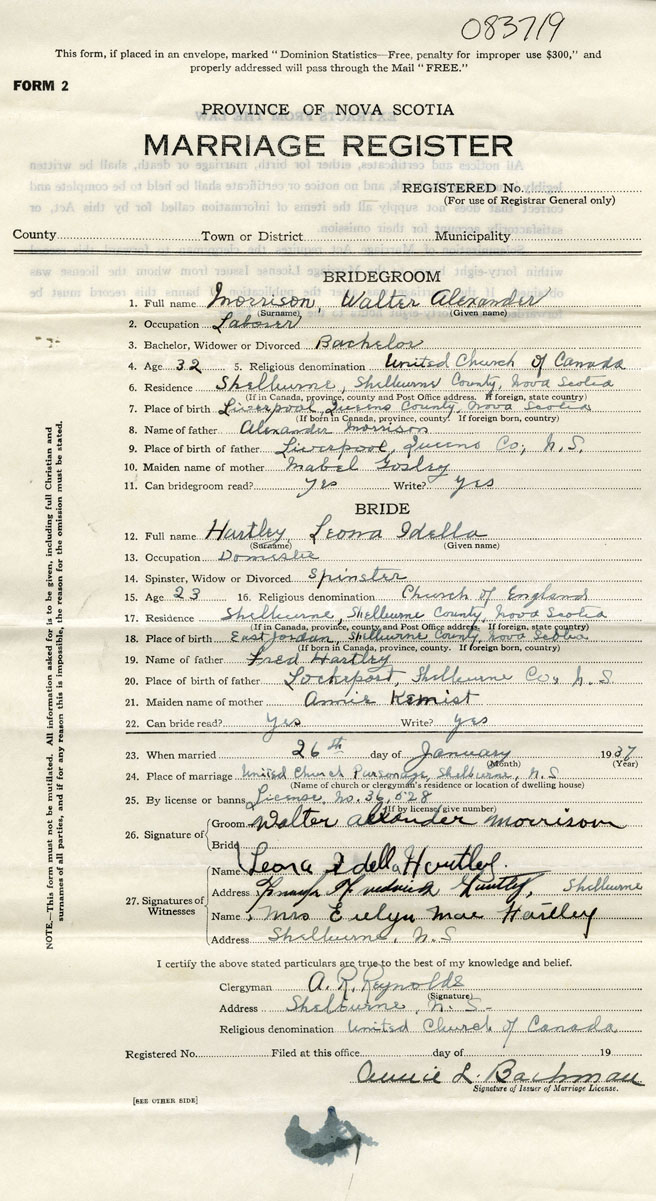 083719
This form, if placed in an envelope, marked "Dominion Statistics—Free, penalty for improper use $300," and
properly addressed will pass through the Mail "FREE."
FORM 2
PROVINCE OF NOVA SCOTIA
MARRIAGE REGISTER
REGISTERED No.
(For use of Registrar General only)
County Town or District Municipality
BRIDEGROOM
1. Full name Morrison, Walter Alexander
(Surname) (Given name)
2. Occupation Laborer
3. Bachelor, Widower or Divorced Bachelor
4. Age 32 5. Religious denomination United Church of Canada
6. Residence Shelburne, Shelburne County, Nova Scotia
(If in Canada, province, county and Post Office address. If foreign, state country)
7. Place of birth Liverpool, Queens County, Nova Scotia
(If born in Canada, province, county. If foreign born, country)
8. Name of father Alexander Morrison
9. Place of birth of father Liverpool, Queens Co., N.S.
10. Maiden name of mother Mabel Gosley
11. Can bridegroom read? yes Write? yes
BRIDE
12. Full name Hartley, Leona Idella
(Surname) (Given name)
13. Occupation Domestic
14. Spinster, Widow or Divorced Spinster
15. Age 23 16. Religious denomination Church of England
17. Residence Shelburne, Shelburne County, Nova Scotia
(If in Canada, province, county and Post Office address. If foreign, state country)
18. Place of birth East Jordan, Shelburne County, Nova Scotia
(If born in Canada, province, county. If foreign born, country)
19. Name of father Fred Hartley
20. Place of birth of father Lockeport, Shelburne Co., N.S
21. Maiden name of mother Annie Kemist
22. Can bride read? Yes Write? Yes
23. When married 26th day of January 1937
(Month) (Year)
24. Place of marriage United Church Parsonage, Shelburne, N.S
(Name of church or clergyman's residence or location of dwelling house)
25. By license or banns License No. 36,528
(If by license give number)
26. Signature of Groom Walter alxander morrison
Bride Leona Idella Hartley.
27. Signatures of Witnesses
Name
Address Shelburne
Name Mrs Evelyn Mae Hartley
Address Shelburne, N.S
I certify the above stated particulars are true to the best of my knowledge and belief.
Clergyman A. R. Reynolds
(Signature)
Address Shelburne, N.S.
Religious denomination United Church of Canada
Registered No. Filed at this office day of 19
Annie L. Bachman
Signature of Issuer of Marriage License.
[SEE OTHER SIDE]
NOTE.—This form must not be mutilated. All information asked for is to be given, including full Christian and
surnames of all parties, and if for any reason this is impossible, the reason for the omission must be stated.